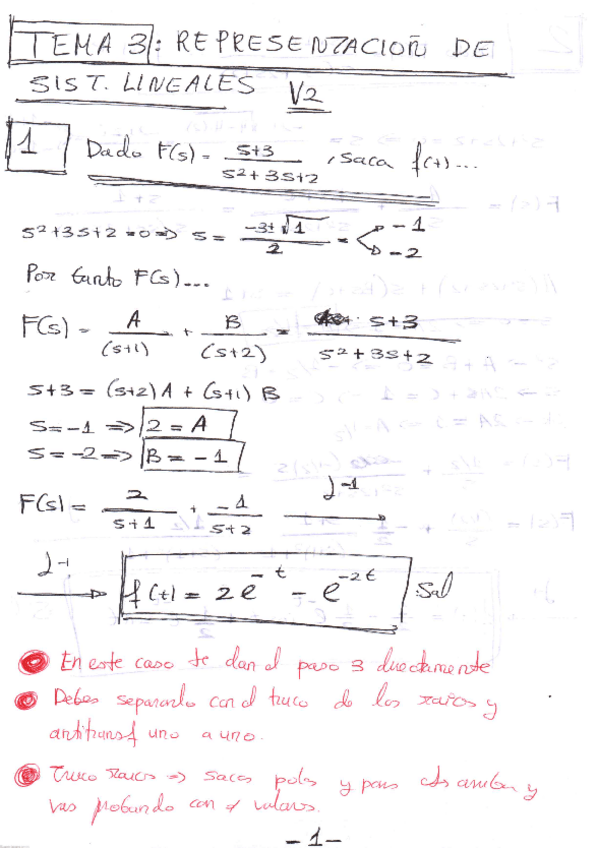 TEMA 3: REPRESENTACIOÑ DE
SIST. LINEALES V2
1 Dado F(s) = (s+3)/(s²+3s+2), saca f(t)...
s²+3s+2=0 => s = (-3±√1)/2 = -1
-2
Por tanto F(s)...
F(s) = A/(s+1) + B/(s+2) = s+3/(s²+3s+2)
s+3 = (s+2)A + (s+1)B
s=-1 => 2 = A
s=-2 => B = -1
F(s) = 2/(s+1) + -1/(s+2) L⁻¹
L⁻¹ f(t) = 2e^-t - e^-2t Sol
En este caso te dan el paso 3 directamente
Debes separarlo con el truco de las raices y
antitransf uno a uno.
Truco raices => sacas polos y pones arriba y
vas probando con valores.
-1-